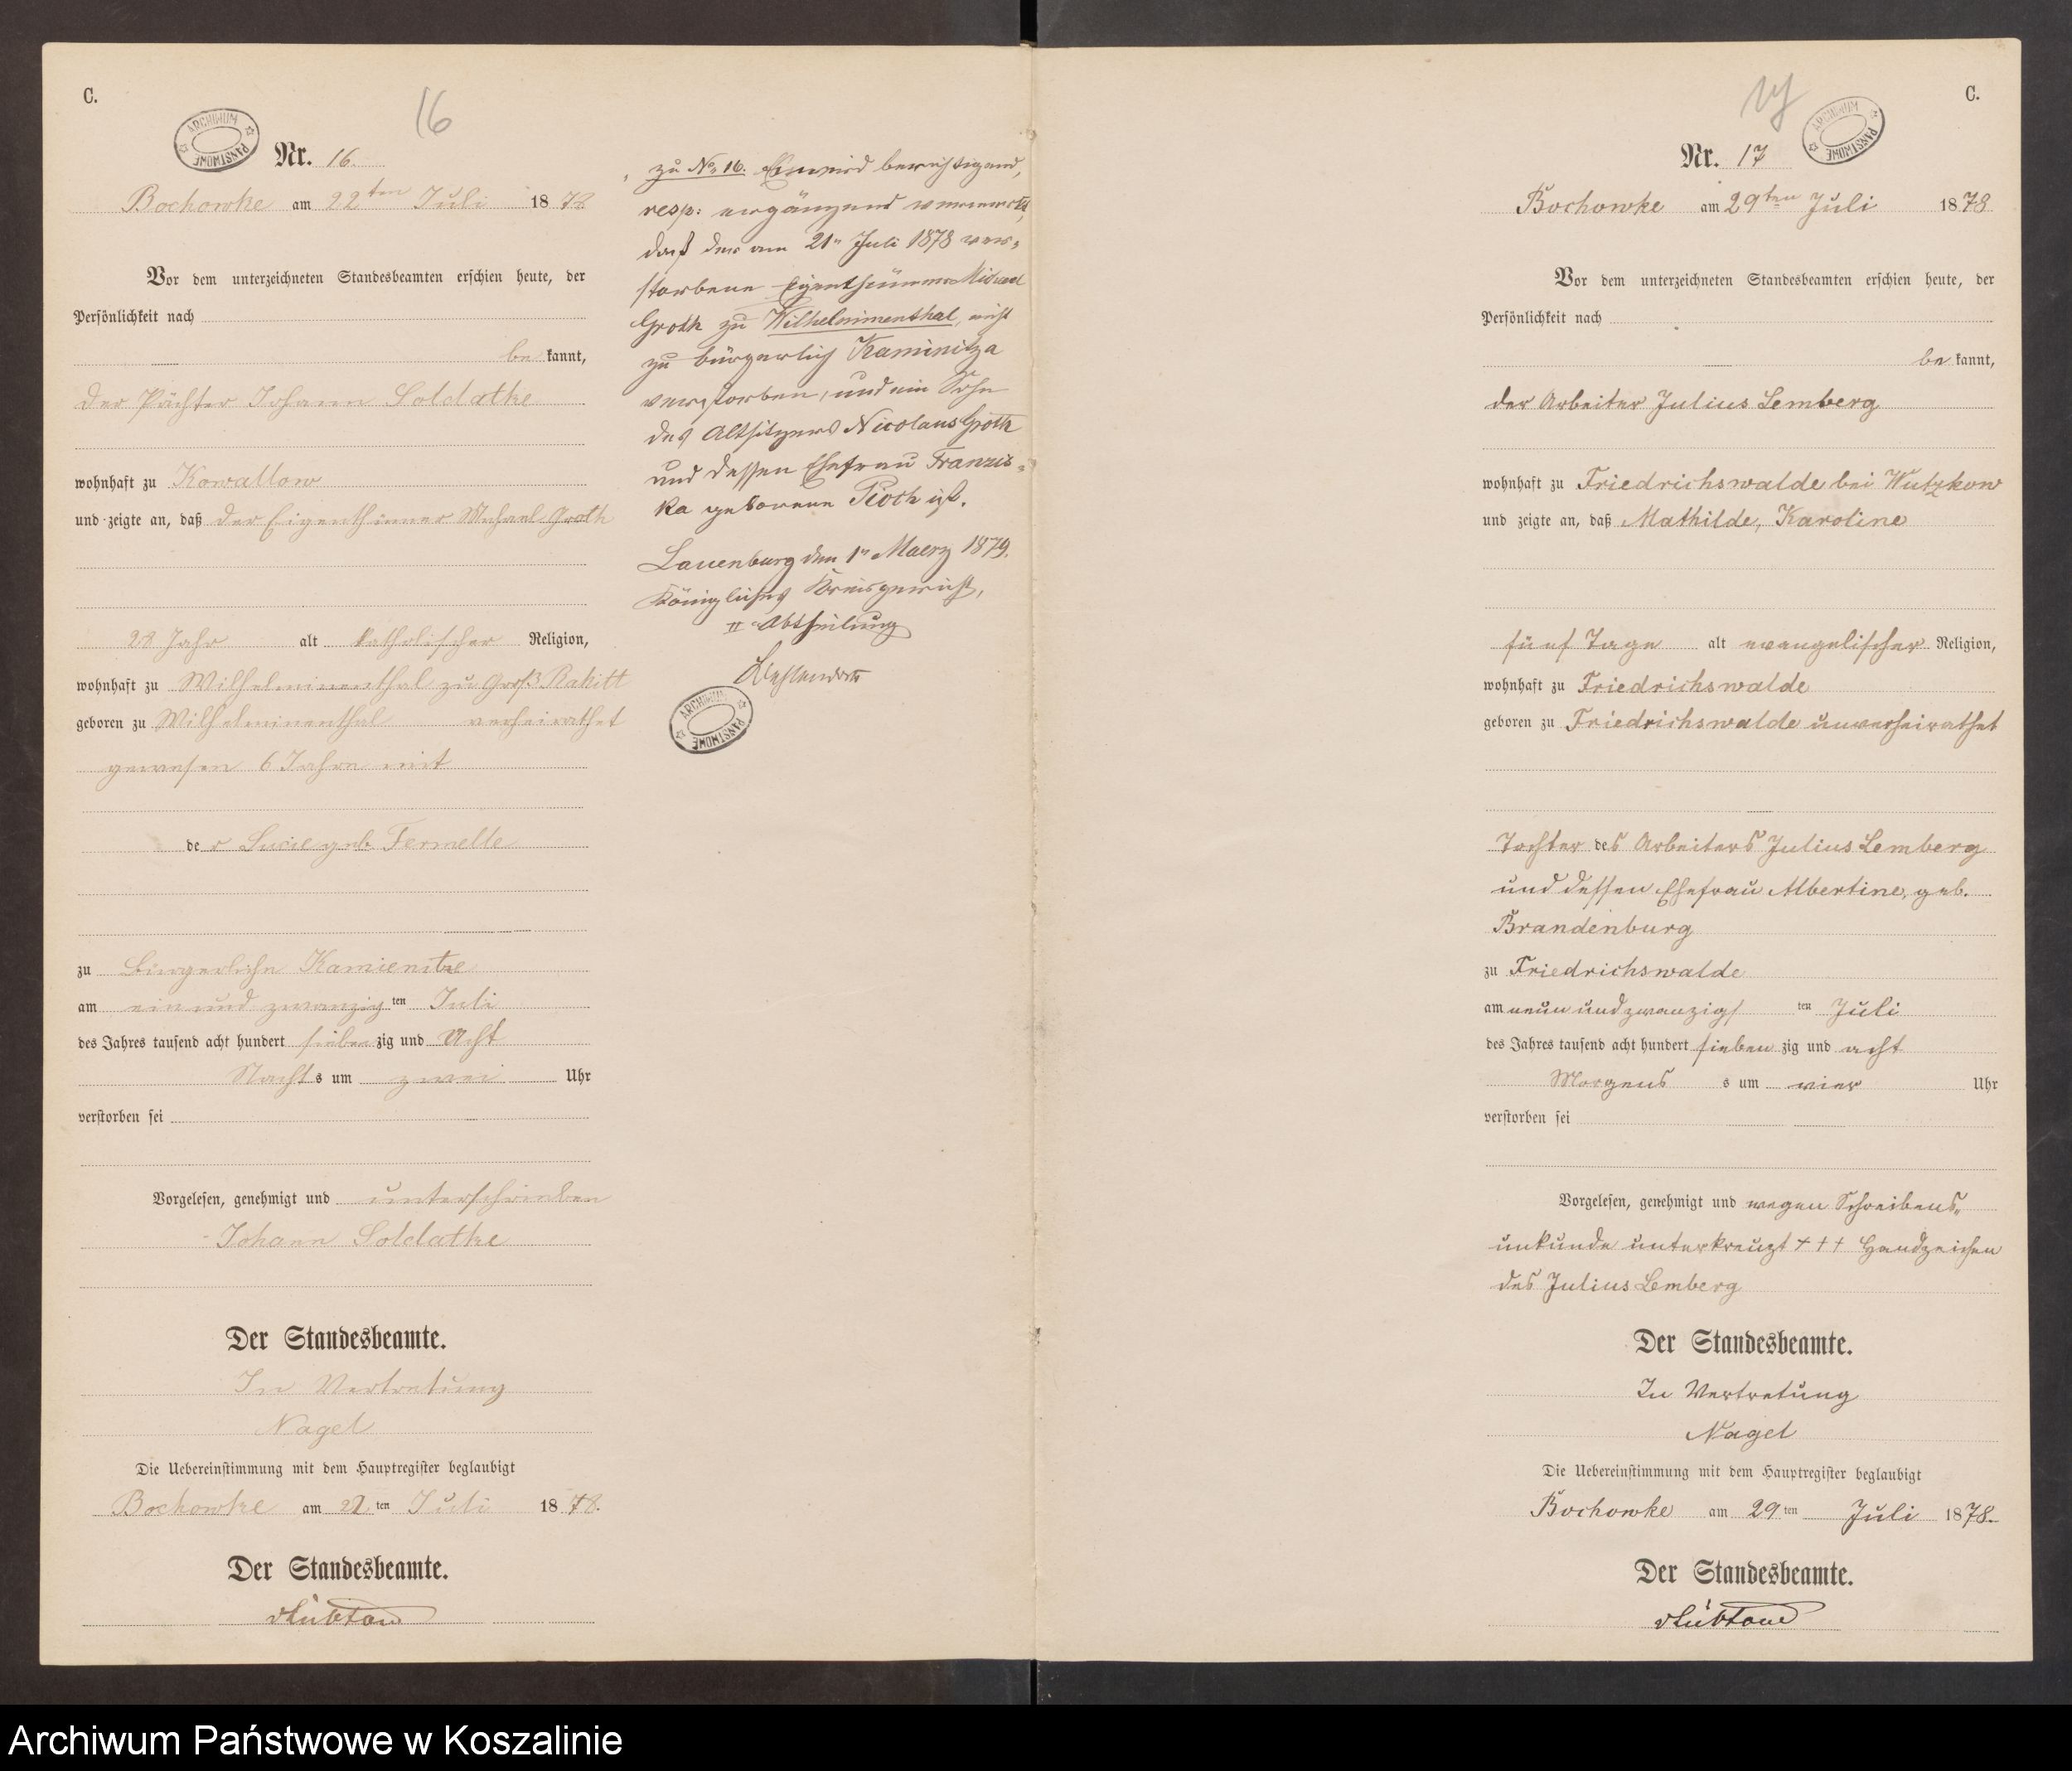 C.
16
ARCHIWUM PAŃSTWOWE
Nr. 16.
Bochowke am 22ten Juli 1878
Vor dem unterzeichneten Standesbeamten erschien heute, der
Persönlichkeit nach
be kannt,
der Pächter Johann Soldatke
wohnhaft zu Kowallow
und zeigte an, daß der Eigenthümer Michael Groth
28 Jahr alt katholischer Religion,
wohnhaft zu Wilhelminenthal zu Groß Rakitt
geboren zu Wilhelminenthal verheirathet
gewesen 6 Jahre mit
der Lucie geb. Fermelle
zu bürgerlich Kamienitze
am ein und zwanzig ten Juli
des Jahres tausend acht hundert siebenzig und Acht
Nachts um zwei Uhr
verstorben sei
Vorgelesen, genehmigt und unterschrieben
Johann Soldatke
Der Standesbeamte.
In Vertretung
Nagel
Die Uebereinstimmung mit dem Hauptregister beglaubigt
Bochowke am 22 ten Juli 1878.
Der Standesbeamte.
zu No. 16. wird berichtigend,
resp: ergänzend vermerkt,
daß der am 21n Juli 1878 ver-
storbene Eigenthümer Michael
Groth zu Wilhelminenthal, nicht
zu bürgerlich Kaminitza
verstorben, und ein Sohn
des Altsitzers Nicolaus Groth
und dessen Ehefrau Franzis-
ka geborene Pioch ist.
Lauenburg den 1n Maerz 1879.
Königliches Kreisgericht,
II Abtheilung
ARCHIWUM PAŃSTWOWE
17
C.
ARCHIWUM PAŃSTWOWE
Nr. 17
Bochowke am 29ten Juli 1878
Vor dem unterzeichneten Standesbeamten erschien heute, der
Persönlichkeit nach
be kannt,
der Arbeiter Julius Lemberg
wohnhaft zu Friedrichswalde bei Wutzkow
und zeigte an, daß Mathilde, Karoline
fünf Tage alt evangelischer Religion,
wohnhaft zu Friedrichswalde
geboren zu Friedrichswalde unverheirathet
Tochter des Arbeiters Julius Lemberg
und dessen Ehefrau Albertine, geb.
Brandenburg
zu Friedrichswalde
am neun und zwanzigs ten Juli
des Jahres tausend acht hundert sieben zig und acht
Morgens s um vier Uhr
verstorben sei
Vorgelesen, genehmigt und wegen Schreibens-
unkunde unterkreuzt + + + Handzeichen
des Julius Lemberg
Der Standesbeamte.
In Vertretung
Nagel
Die Uebereinstimmung mit dem Hauptregister beglaubigt
Bochowke am 29 ten Juli 1878.
Der Standesbeamte.
Archiwum Państwowe w Koszalinie